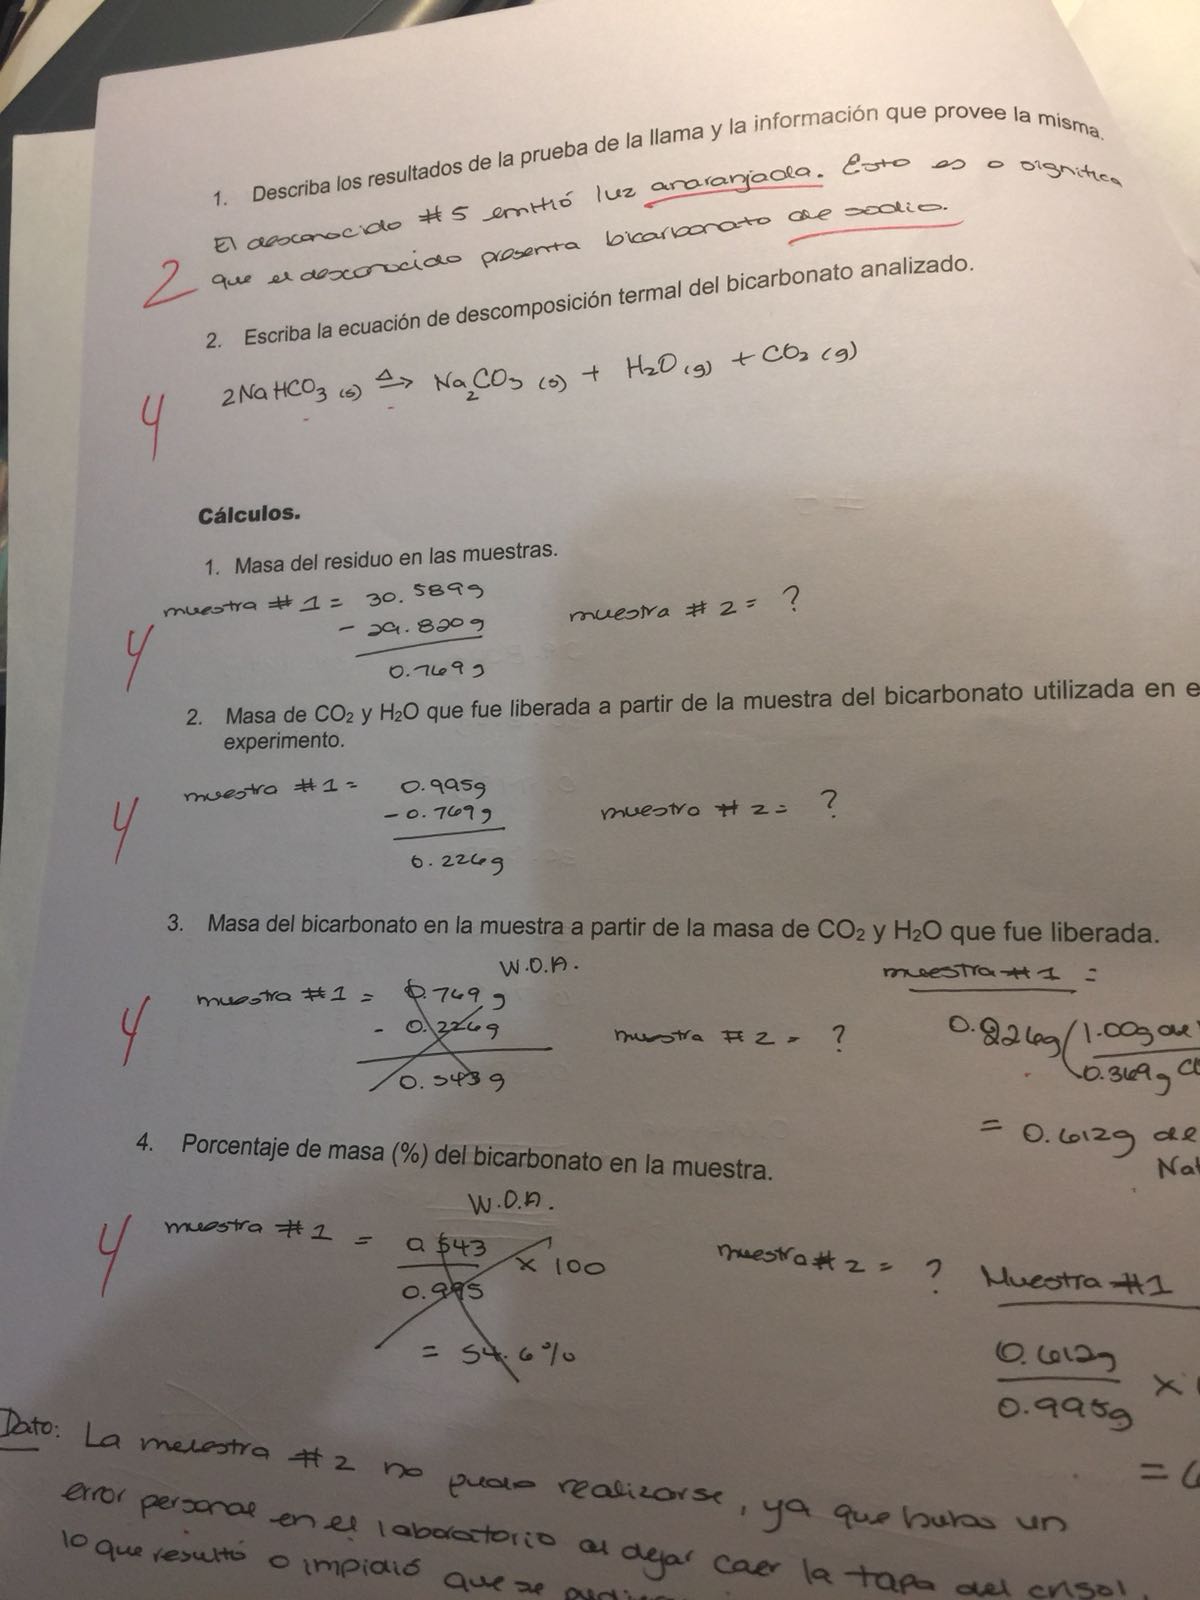 1. Describa los resultados de la prueba de la llama y la información que provee la misma.
El desconocido #5 emitió luz anaranjada. Esto es o significa
que el desconocido presenta bicarbonato de sodio.
2
2. Escriba la ecuación de descomposición termal del bicarbonato analizado.
2NaHCO3 (s) Δ→ Na2CO3 (s) + H2O (g) + CO2 (g)
4
Cálculos.
1. Masa del residuo en las muestras.
muestra #1 = 30.589g muestra #2 = ?
- 29.820g
4
0.769g
2. Masa de CO2 y H2O que fue liberada a partir de la muestra del bicarbonato utilizada en e
experimento.
muestra #1 = 0.995g muestra #2 = ?
- 0.769g
4
0.226g
3. Masa del bicarbonato en la muestra a partir de la masa de CO2 y H2O que fue liberada.
W.O.A. muestra #1 =
muestra #1 = 0.769g
- 0.226g muestra #2 = ? 0.226g (1.00g de
4 0.369g
0.543g
= 0.612g de
Na
4. Porcentaje de masa (%) del bicarbonato en la muestra.
W.O.A.
4 muestra #1 = 0.543 x 100 muestra #2 = ? Muestra #1
0.995
= 54.6%
0.612g x
0.995g
=
Dato: La muestra #2 no pudo realizarse, ya que hubo un
error personal en el laboratorio al dejar caer la tapa del crisol,
lo que resultó o impidió que se